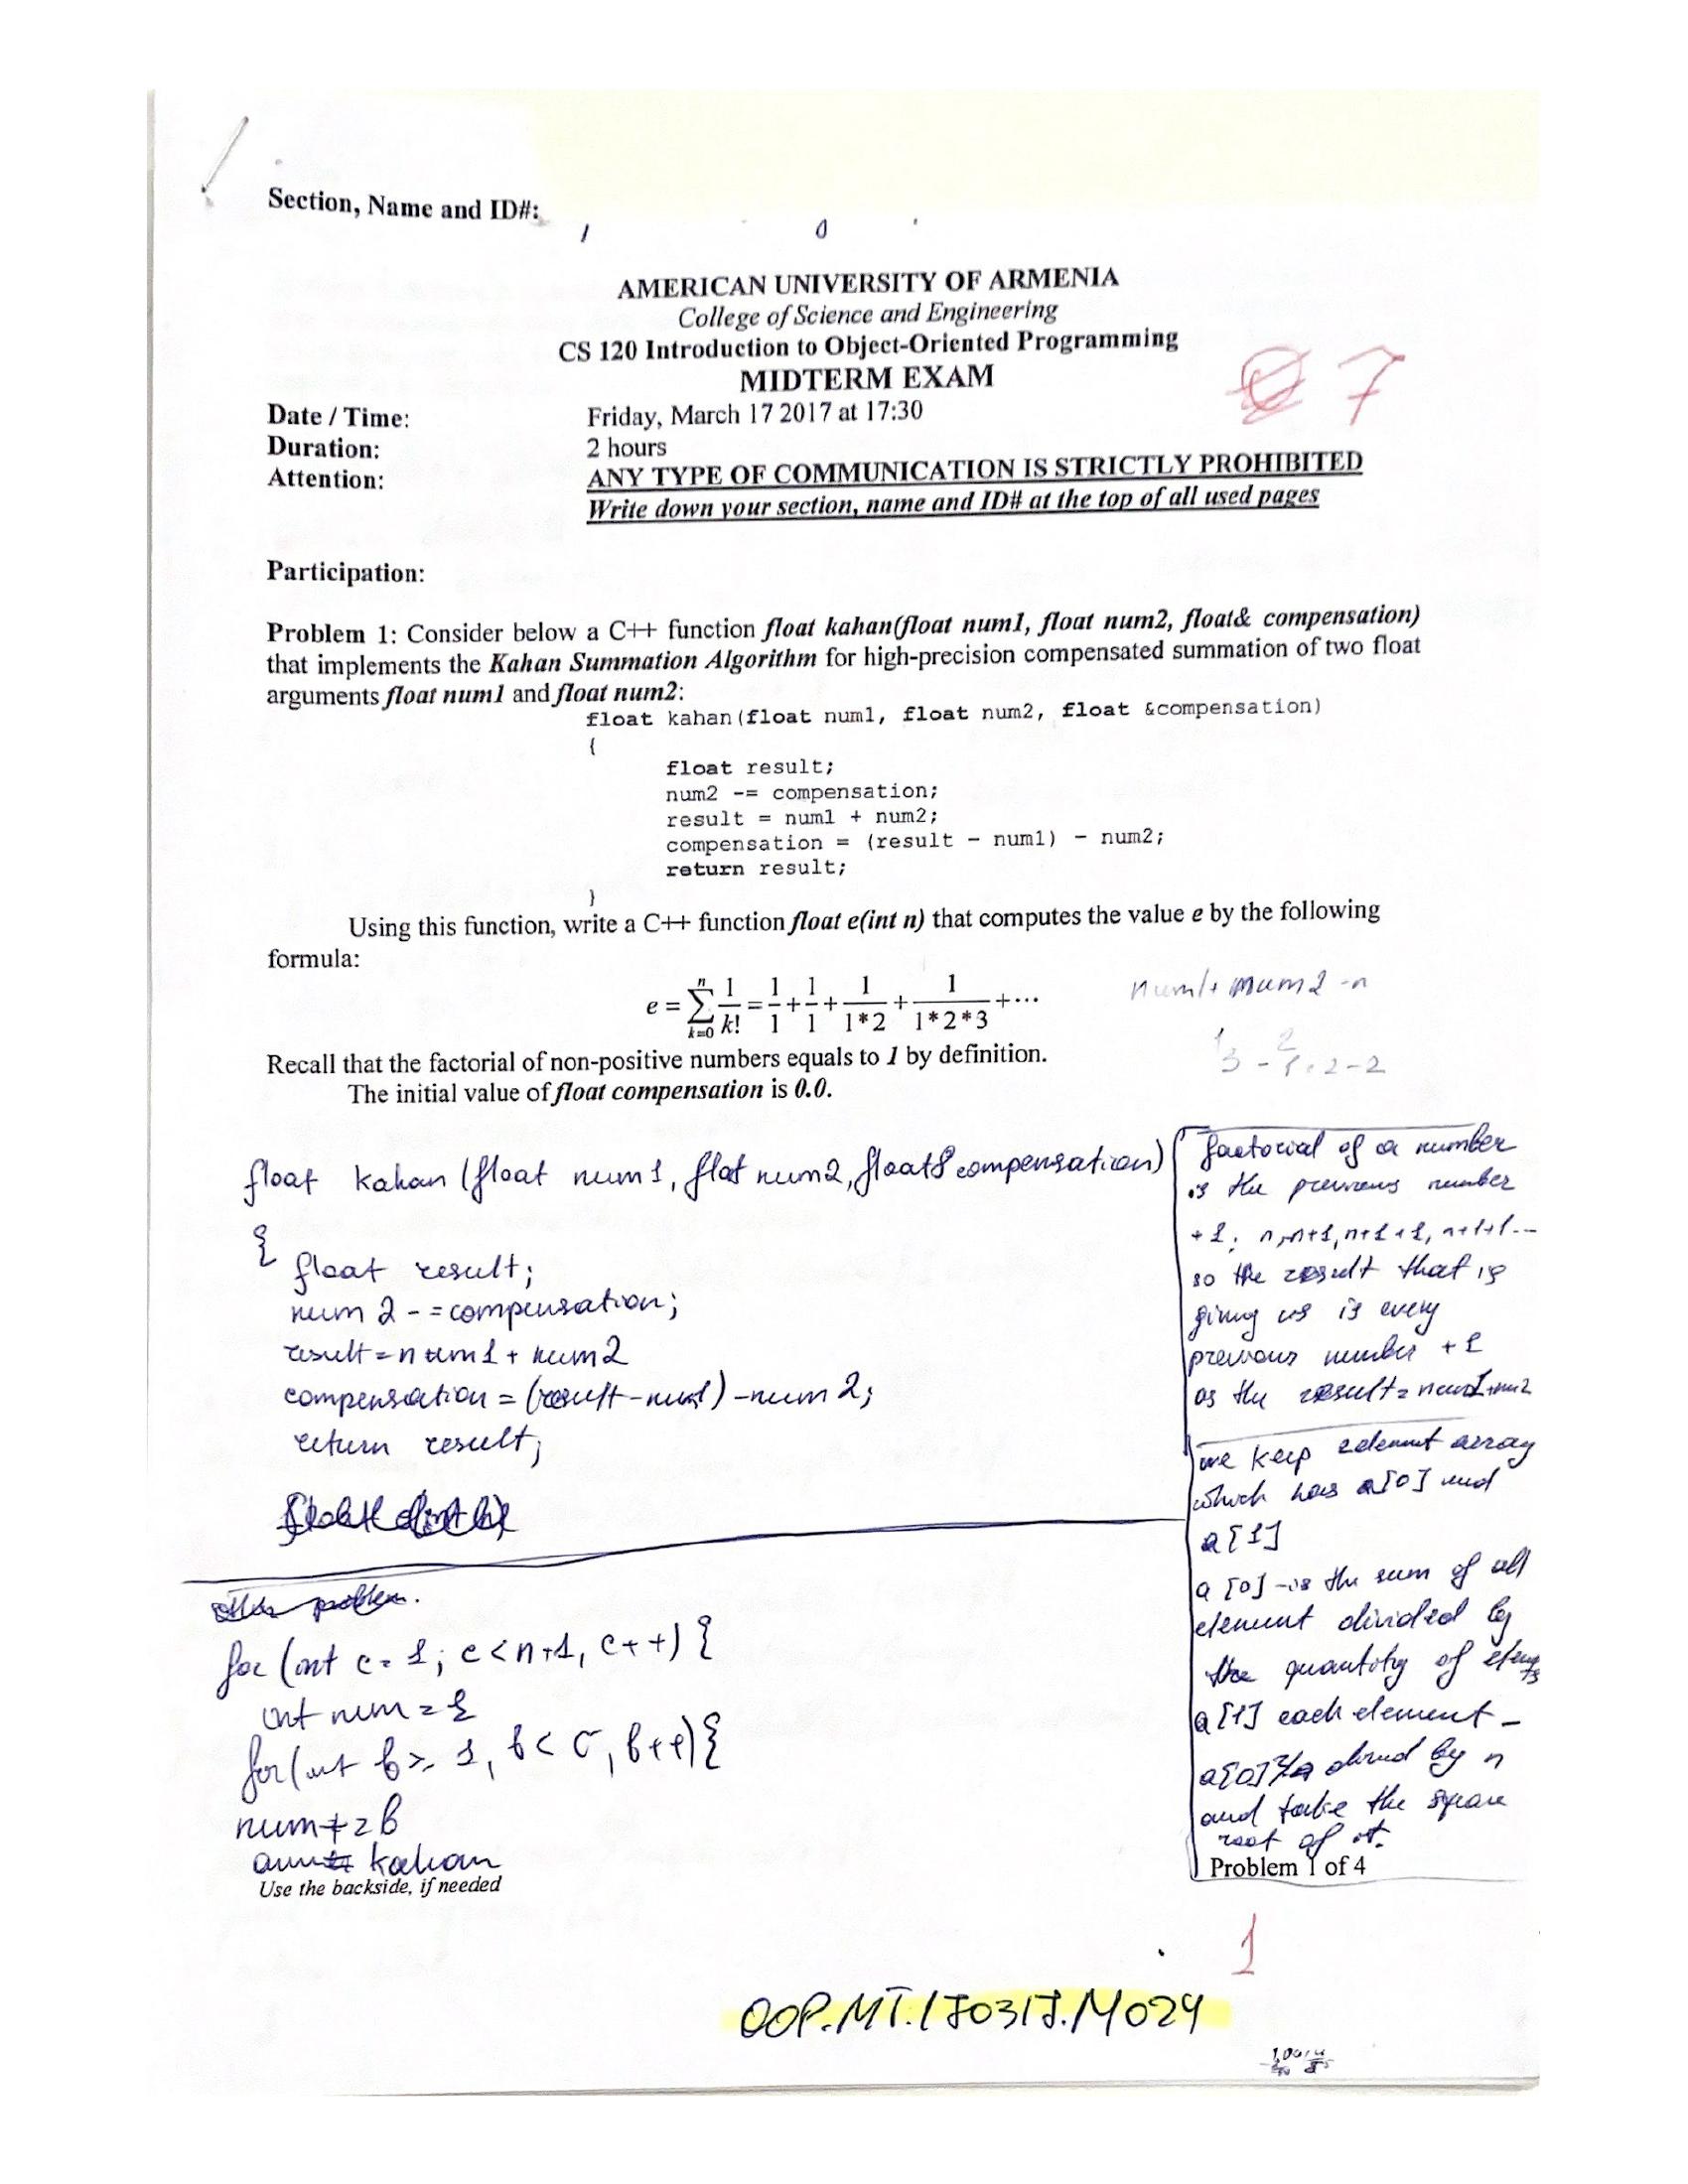 Section, Name and ID#:
AMERICAN UNIVERSITY OF ARMENIA
College of Science and Engineering
CS 120 Introduction to Object-Oriented Programming
MIDTERM EXAM
7
Date / Time: Friday, March 17 2017 at 17:30
Duration: 2 hours
Attention: ANY TYPE OF COMMUNICATION IS STRICTLY PROHIBITED
Write down your section, name and ID# at the top of all used pages
Participation:
Problem 1: Consider below a C++ function float kahan(float num1, float num2, float& compensation)
that implements the Kahan Summation Algorithm for high-precision compensated summation of two float
arguments float num1 and float num2:
float kahan(float num1, float num2, float &compensation)
{
float result;
num2 -= compensation;
result = num1 + num2;
compensation = (result - num1) - num2;
return result;
}
Using this function, write a C++ function float e(int n) that computes the value e by the following
formula:
e = n ∑ k=0 1/k! = 1/1 + 1/1 + 1/1*2 + 1/1*2*3 + ···
num1+ mum2 -n
Recall that the factorial of non-positive numbers equals to 1 by definition.
The initial value of float compensation is 0.0.
float kahan (float num1, flat num2, float& compensation)
{
float result;
num 2 -= compensation;
result = num1 + num2
compensation = (result - num1) - num 2;
return result;
for (int c = 1; c < n+1, c++) {
int num = 1
for (int b = 1, b < c, b++) {
num += b
kahan
factorial of a number
is the previous number
+ 1; n, n+1, n+1+1, n+1+1...
so the result that is
giving us is every
previous number + 1
as the result = num1+num2
we keep 2element array
which has a[0] and
a[1]
a[0] - is the sum of all
element divided by
the quantity of
a[1] each element -
a[0] by n
and take the square
root of it.
Use the backside, if needed
Problem 1 of 4
1
OOP.MT.170317.M024